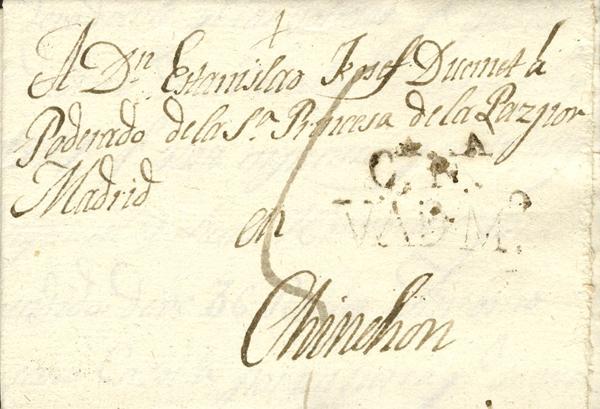 A Dn Estanislao Josef Ducnet á
Poderado de la Sra Princesa de la Paz por
Madrid
en
Chinchon
C.N.A
VAD.M.